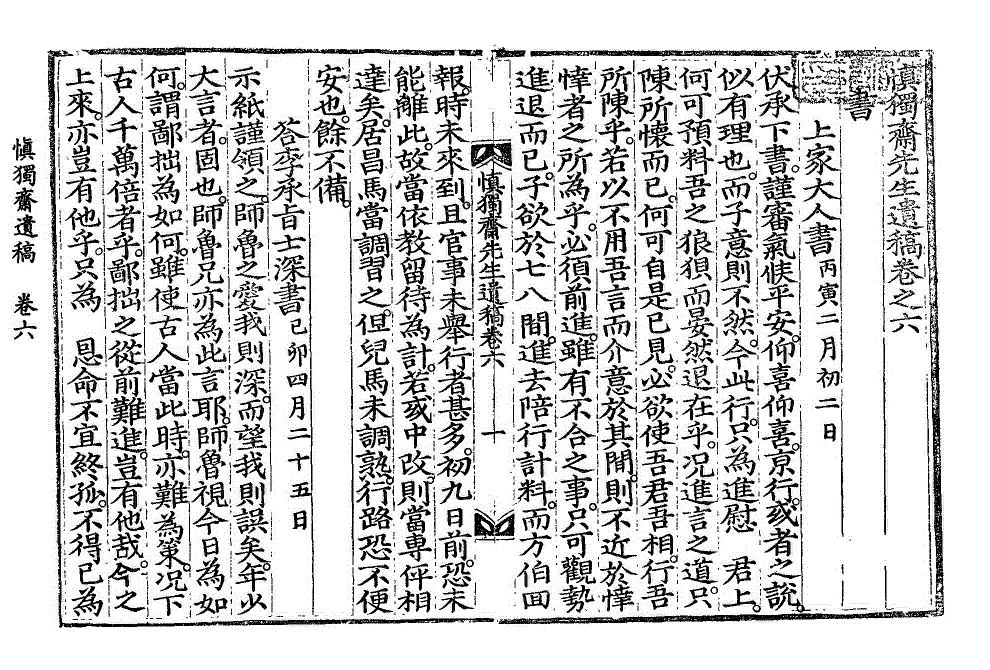 愼獨齋先生遺稿卷之六
書
上家大人書 丙寅二月初二日
伏承下書。謹審氣候平安。仰喜仰喜。京行。或者之說。
似有理也。而子意則不然。今此行。只為進慰 君上。
何可預料吾之狼狽而晏然退在乎。况進言之道。只
陳所懷而已。何可自是己見。必欲使吾君吾相。行吾
所陳乎。若以不用吾言而介意於其間。則不近於悻
悻者之所為乎。必須前進。雖有不合之事。只可觀勢
進退而已。子欲於七八間。進去陪行計料。而方伯回
愼獨齋先生遺稿卷六
十
報。時未來到。且官事未舉行者甚多。初九日前。恐未
能離此。故當依敎留待為計。若或中改。則當專伻相
達矣。居昌馬當調習之。但兒馬未調熟。行路恐不便
安也。餘不備。
荅李承旨士深書 己卯四月二十五日
示紙謹領之。師魯之愛我則深。而望我則誤矣。年少
大言者。固也。師魯兄亦為此言耶。師魯視今日為如
何。謂鄙拙為如何。雖使古人當此時。亦難為策。况下
古人千萬倍者乎。鄙拙之從前難進。豈有他哉。今之
上來。亦豈有他乎。只為 恩命不宜終孤。不得已為
愼獨齋遺稿 卷六